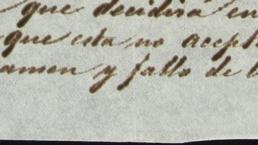 que decidirá en
que esta no acept
amen y fallo de l